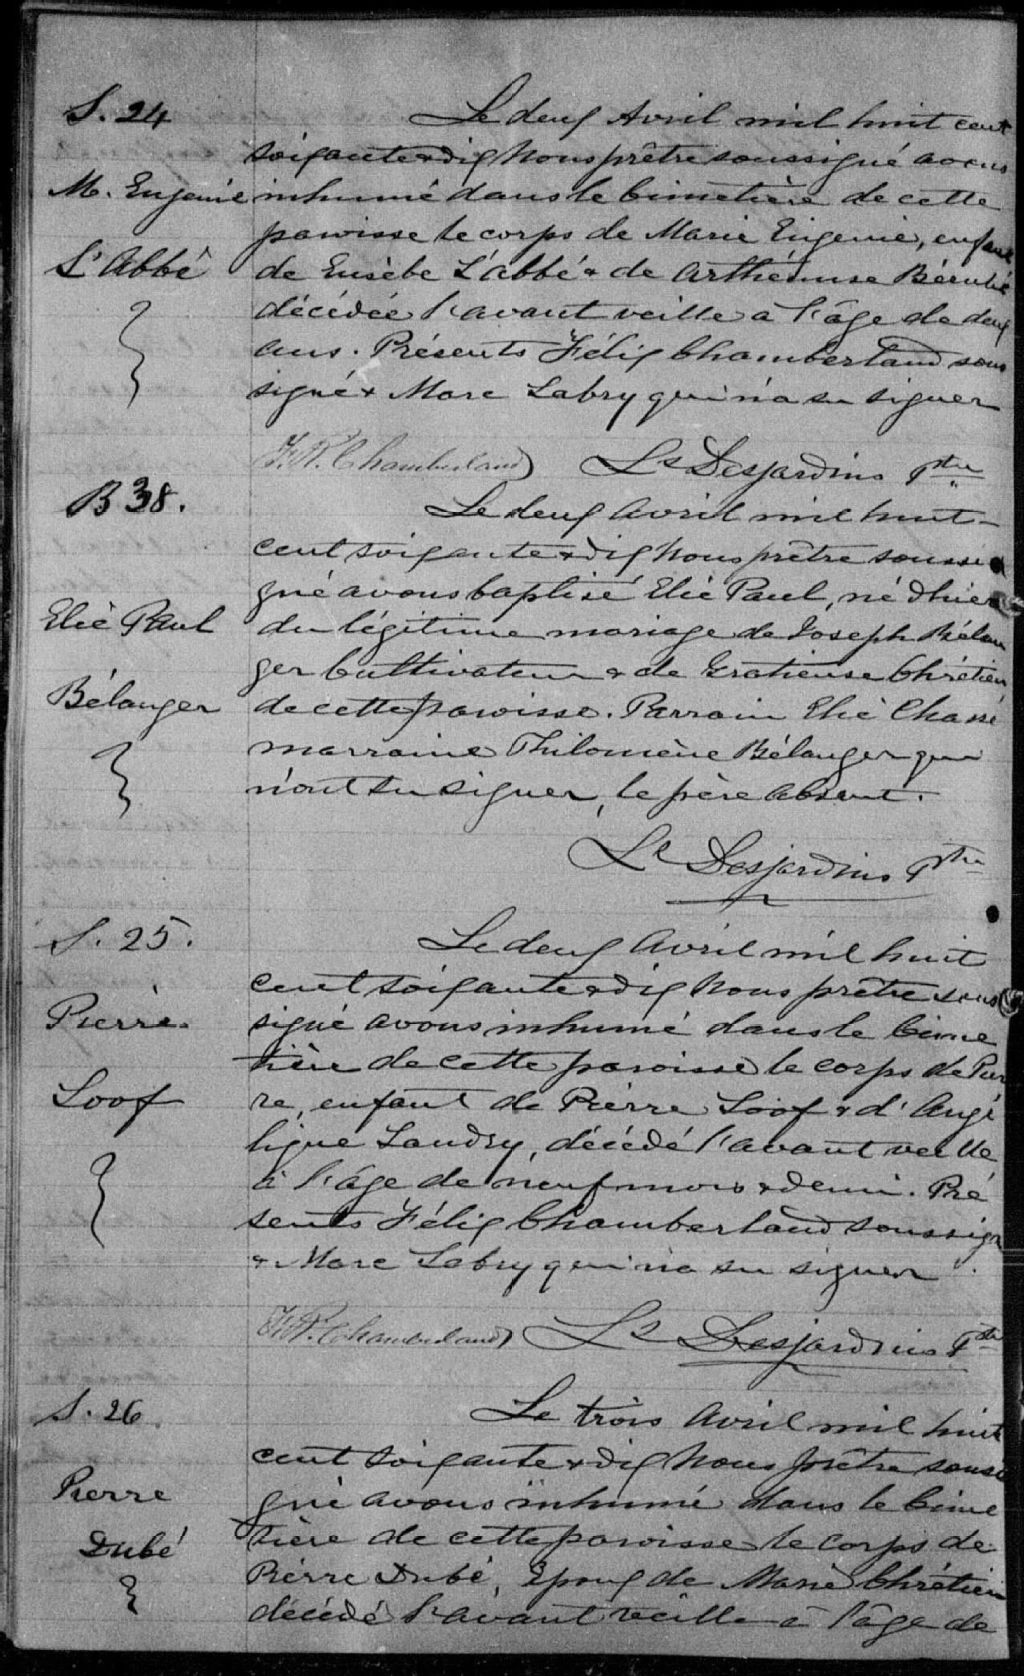 S. 24
M. Eugenie
L'Abbé
Le deux Avril mil huit cent
soixante & dix Nous prêtre soussigné avons
inhumé dans le Cimetière de cette
paroisse le corps de Marie Eugenie, enfant
de Eusèbe L'abbé & de Arthémise Bérubé
décédée l'avant veille à l'âge de deux
ans. Présents Félix Chamberland sous
signé & Marc Labry qui n'a su signer
F. R. Chamberland Ls Desjardins Ptre
B 38.
Elie Paul
Bélanger
Le deux Avril mil huit
cent soixante & dix Nous prêtre soussi
gné avons baptisé Elie Paul, né d'hier
du légitime mariage de Joseph Bélan
ger Cultivateur & de Gratieuse Chrétien
de cette paroisse. Parrain Elie Chassé
marraine Philomène Bélanger qui
n'ont su signer, le père absent.
Ls Desjardins Ptre
S. 25.
Pierre
Soof
Le deux Avril mil huit
cent soixante & dix Nous prêtre sous
signé avons inhumé dans le Cime
tière de cette paroisse le corps de Pier
re, enfant de Pierre Soof & d'Angé
lique Landry, décédé l'avant veille
à l'âge de neuf mois & demi. Pré
sents Félix Chamberland soussign
& Marc Labry qui n'a su signer.
F. R. Chamberland Ls Desjardins Ptre
S. 26
Pierre
Dubé
Le trois Avril mil huit
cent soixante & dix Nous prêtre soussi
gné avons inhumé dans le Cime
tière de cette paroisse le corps de
Pierre Dubé, Epoux de Marie Chrétien
décédé l'avant veille à l'âge de